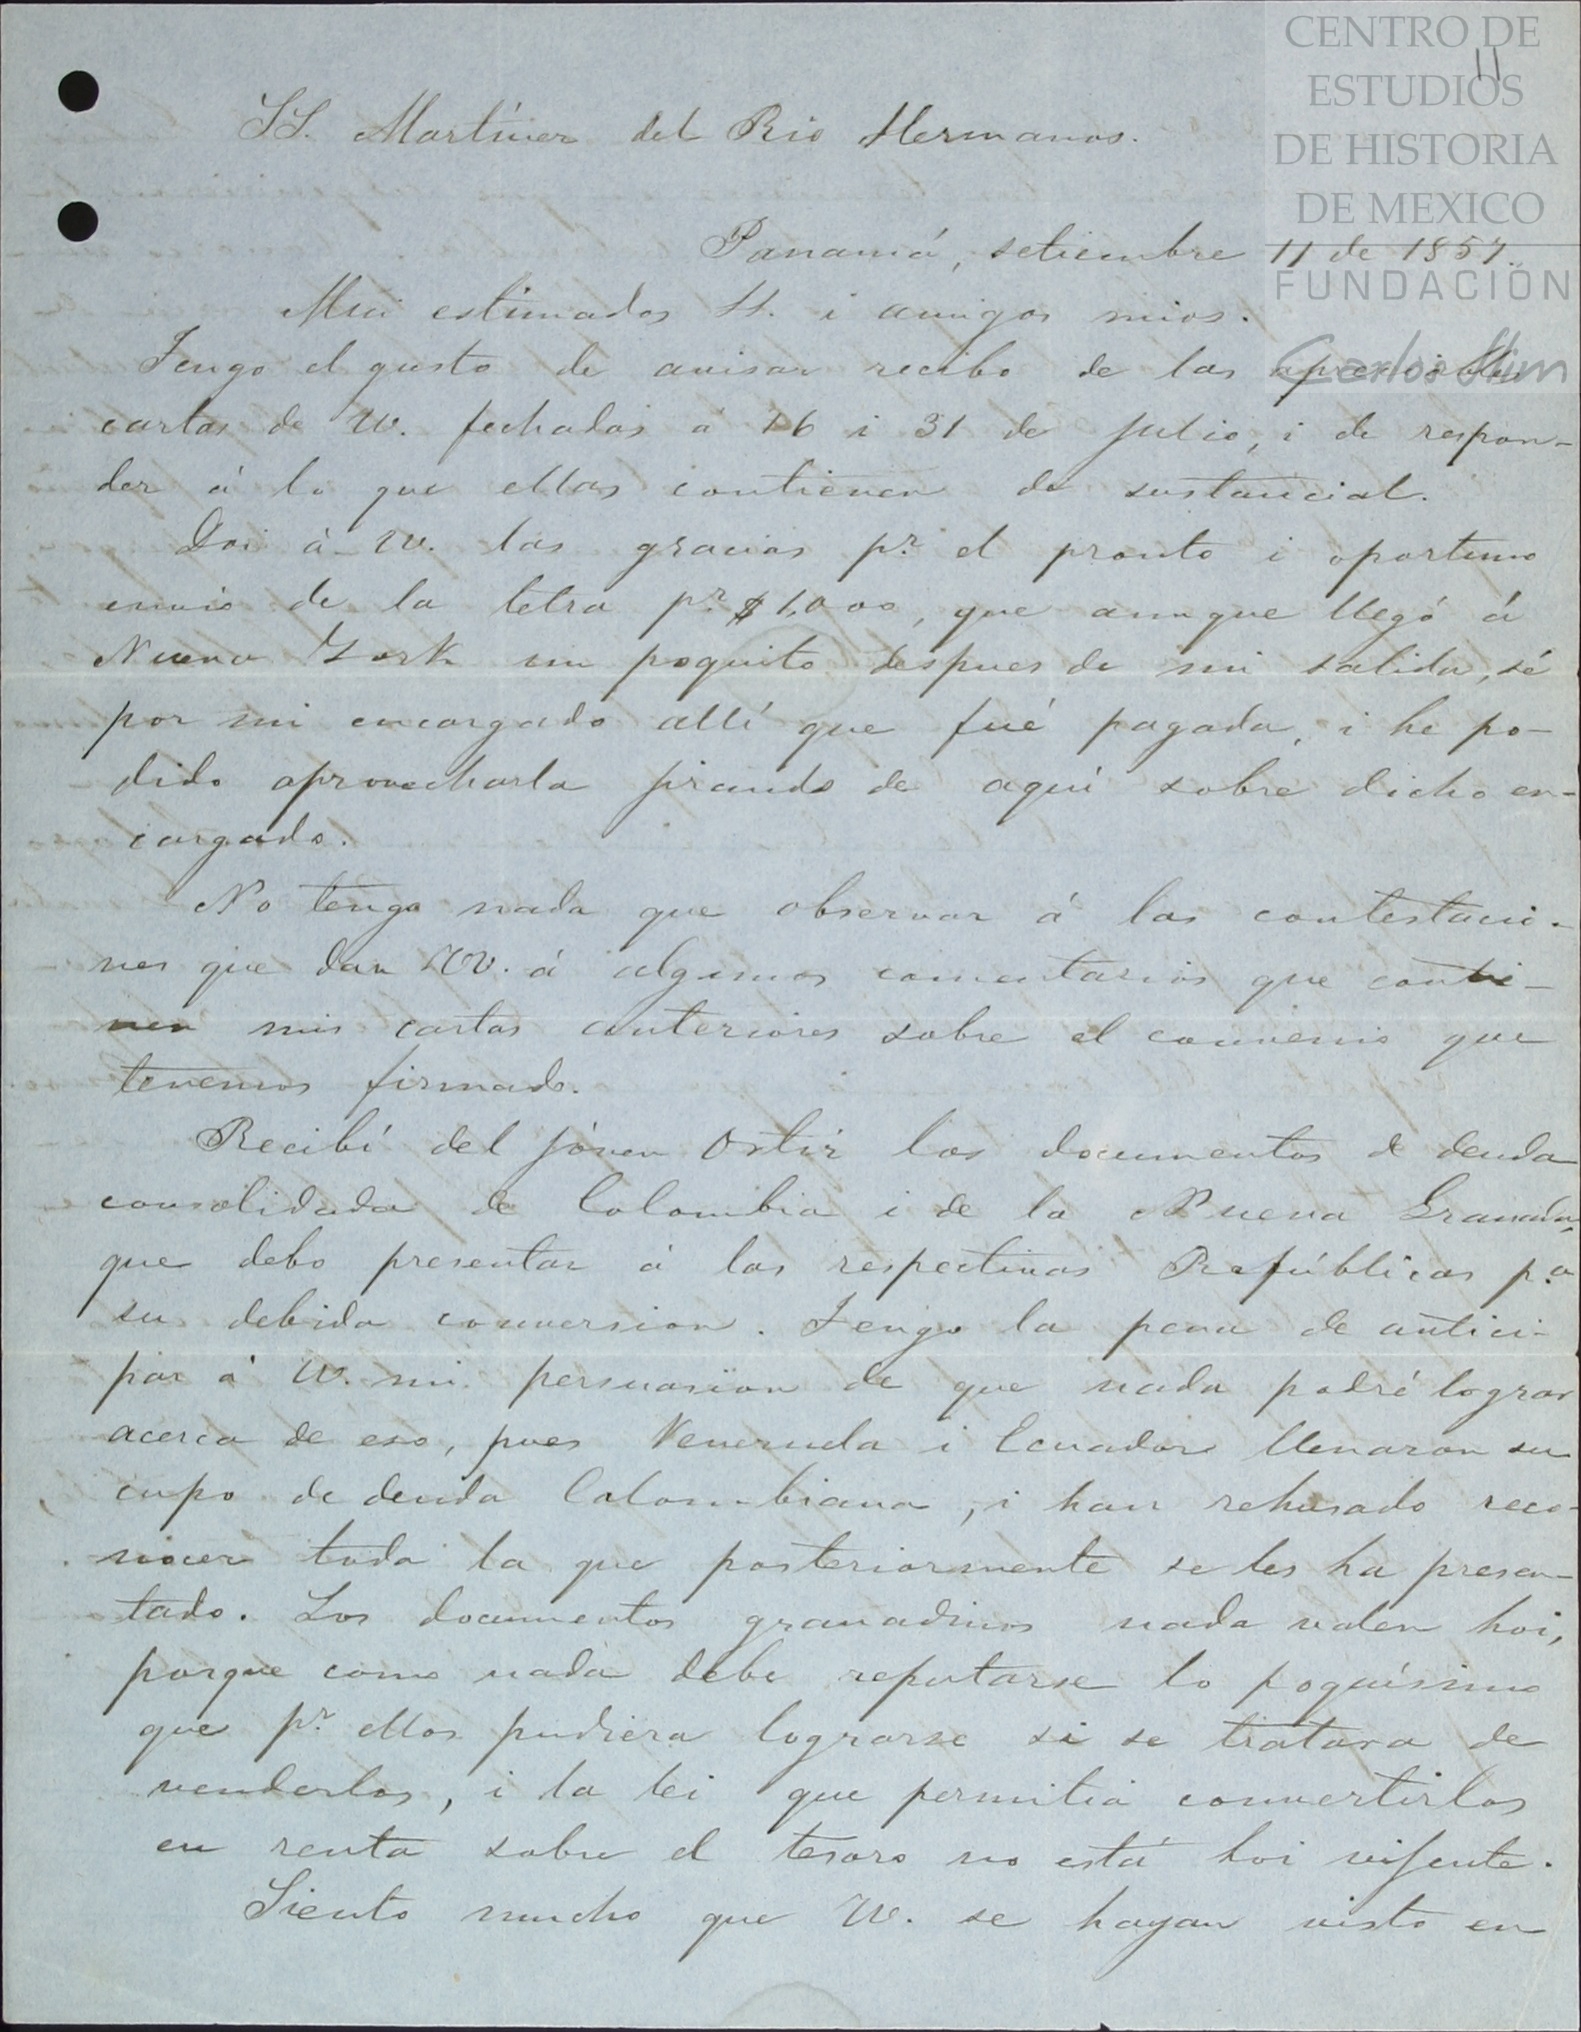 CENTRO DE
ESTUDIOS
DE HISTORIA
DE MEXICO
FUNDACIÓN
Carlos Slim
11
SS. Martínez del Rio Hermanos.
Panamá, setiembre 11 de 1857.
Mui estimados SS. i amigos mios.
Tengo el gusto de avisar recibo de las apreciables
cartas de VV. fechadas á 16 i 31 de julio, i de respon-
der á lo que ellas contienen de sustancial.
Doi á VV. las gracias pr. el pronto i oportuno
envio de la letra pr. $1,000, que aunque llegó á
Nueva York un poquito despues de mi salida, sé
por mi encargado allí que fué pagada, i he po-
dido aprovecharla jirando de aquí sobre dicho en-
cargado.
No tengo nada que observar á las contestacio-
nes que dan VV. á algunos comentarios que conti-
nen mis cartas anteriores sobre el convenio que
tenemos firmado.
Recibí del jóven Ortiz los documentos de deuda
consolidada de Colombia i de la Nueva Granada,
que debo presentar á las respectivas Repúblicas p.a
su debida conversion. Tengo la pena de antici-
par á VV. mi persuasion de que nada podré lograr
acerca de eso, pues Venezuela i Ecuador llenaron su
cupo de deuda Colombiana, i han rehusado reco-
nocer toda la que posteriormente se les ha presen-
tado. Los documentos granadinos nada valen hoi,
porque como nada debe reputarse lo poquísimo
que pr. ellos pudiera lograrse si se tratara de
venderlos, i la lei que permitia convertirlos
en renta sobre el tesoro no está hoi vijente.
Siento mucho que VV. se hayan visto en